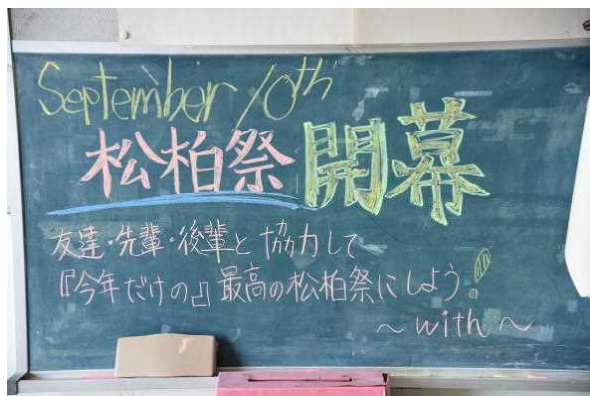 September 10th
松柏祭 開幕
友達・先輩・後輩と協力して
『今年だけの』最高の松柏祭にしよう!
〜with〜